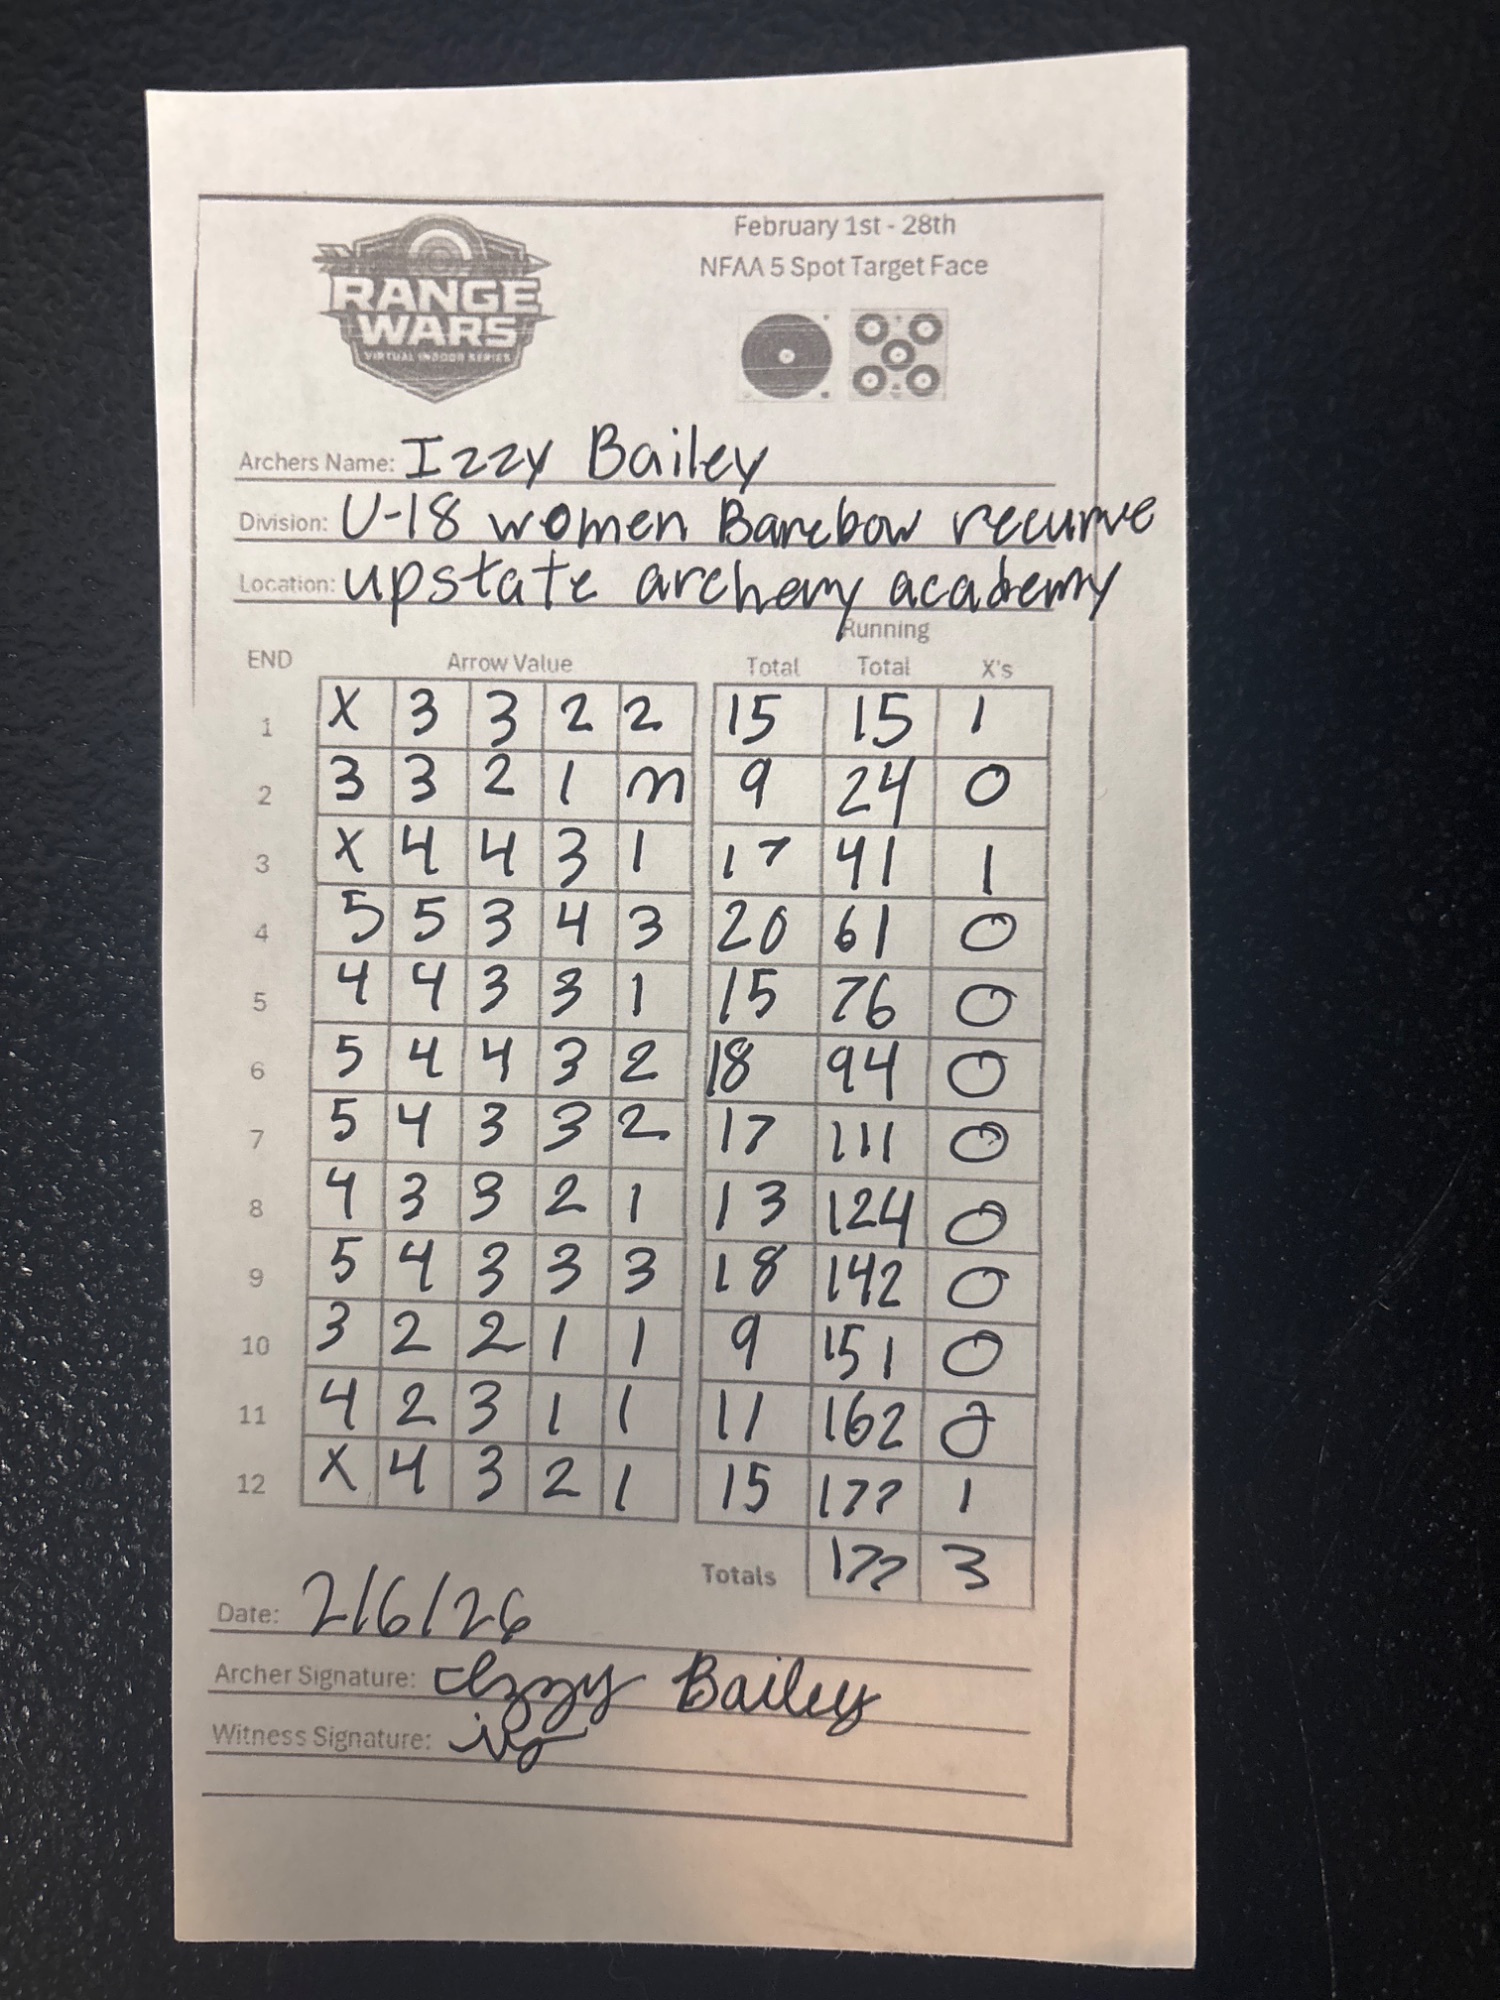 February 1st - 28th
NFAA 5 Spot Target Face
RANGE
WARS
VIRTUAL INDOOR SERIES
Archers Name: Izzy Bailey
Division: U-18 women Barebow recurve
Location: upstate archery academy
Running
END Arrow Value Total Total X's
1 X 3 3 2 2 15 15 1
2 3 3 2 1 m 9 24 0
3 X 4 4 3 1 17 41 1
4 5 5 3 4 3 20 61 0
5 4 4 3 3 1 15 76 0
6 5 4 4 3 2 18 94 0
7 5 4 3 3 2 17 111 0
8 4 3 3 2 1 13 124 0
9 5 4 3 3 3 18 142 0
10 3 2 2 1 1 9 151 0
11 4 2 3 1 1 11 162 0
12 X 4 3 2 1 15 177 1
Totals 177 3
Date: 2/6/26
Archer Signature: Izzy Bailey
Witness Signature: